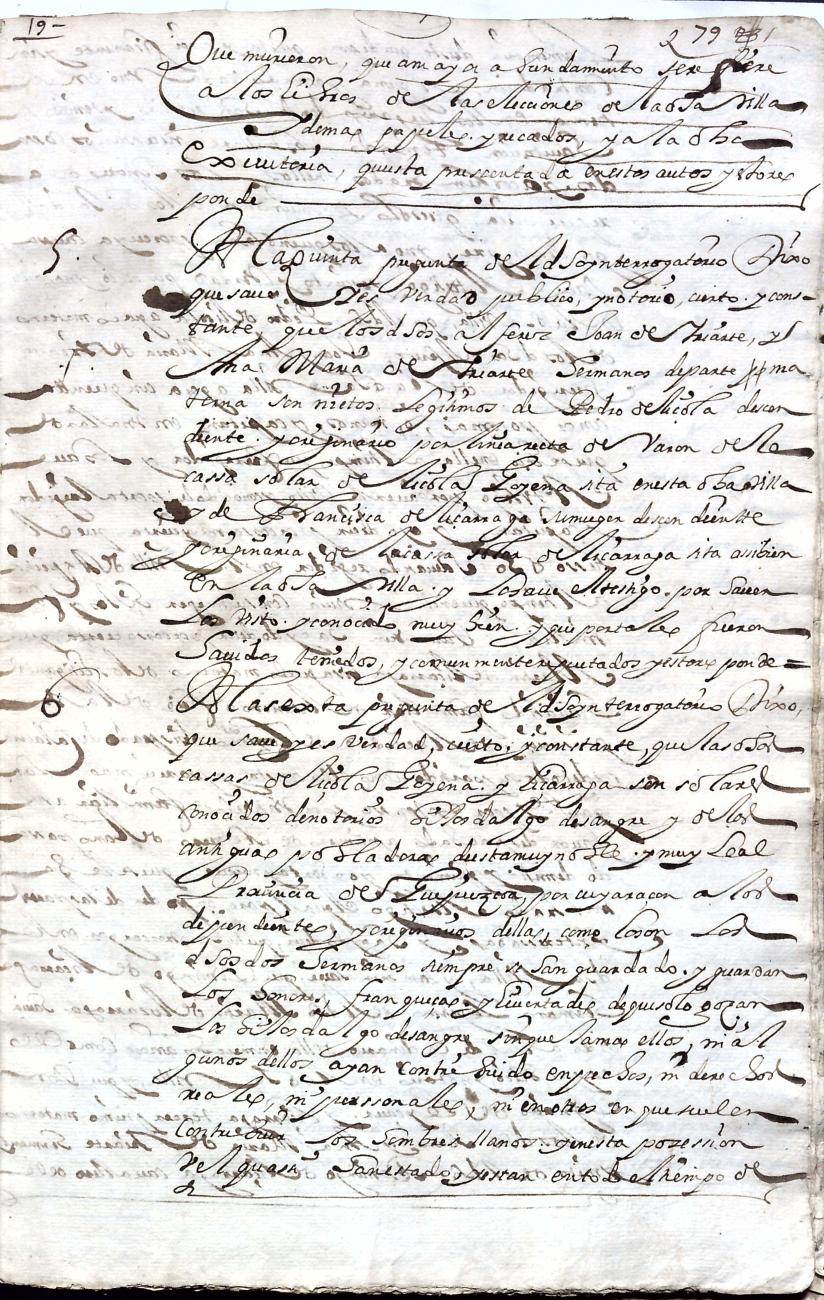 19-
279
Que murieron, que a mayor a bundamiento se refiere
a los libros de las elecciones de la dha villa
y demas papeles y recados, y a la dha
executoria, que esta presentada en estos autos y esto res
ponde
5. A la quinta pregunta del dho ynterrogatorio Dixo
que save y es verdad publico, y notorio, cierto y cons-
tante, que los dhos alferez Joan de Yriarte, y
Ana Maria de Yriarte hermanos de parte ma
terna son nietos legitimos de Pedro de Licola descen
diente y origenario por linia recta de varon de la
cassa solar de Licola Goyena sita en esta dha villa
y de Francisca de Liçarraga su muger descendiente
y origenaria de la cassa solar de Liçarraga sita assibien
en la dha villa y lo save el testigo por haver
los visto y conocido muy bien, y que por tales fueron
havidos tenidos, y comunmente reputados y esto responde =
6 A la sexta pregunta del dho ynterrogatorio Dixo,
que save y es verdad, cierto y constante, que las dhas
cassas de Licola Goyena y Liçarraga son solares
conocidos de notorios hijosdalgo de sangre y de los
antiguas pobladoras de esta muy noble y muy Leal
Provincia de Guipuzcoa, por cuya raçon a los
dependientes, y origenarios dellas, como lo son los
dhos dos hermanos siempre se han guardado y guardan
los honores, franqueças y livertades de que solo gozan
los hijosdalgo de sangre sin que jamas ellos, ni al
gunos dellos ayan contribuido en pechos, ni derechos
reales, ni perssonales, ni en otros en que suelen
contribuir los hombres llanos y en esta possession
vel quasi han estado, y estan en todo el tiempo de